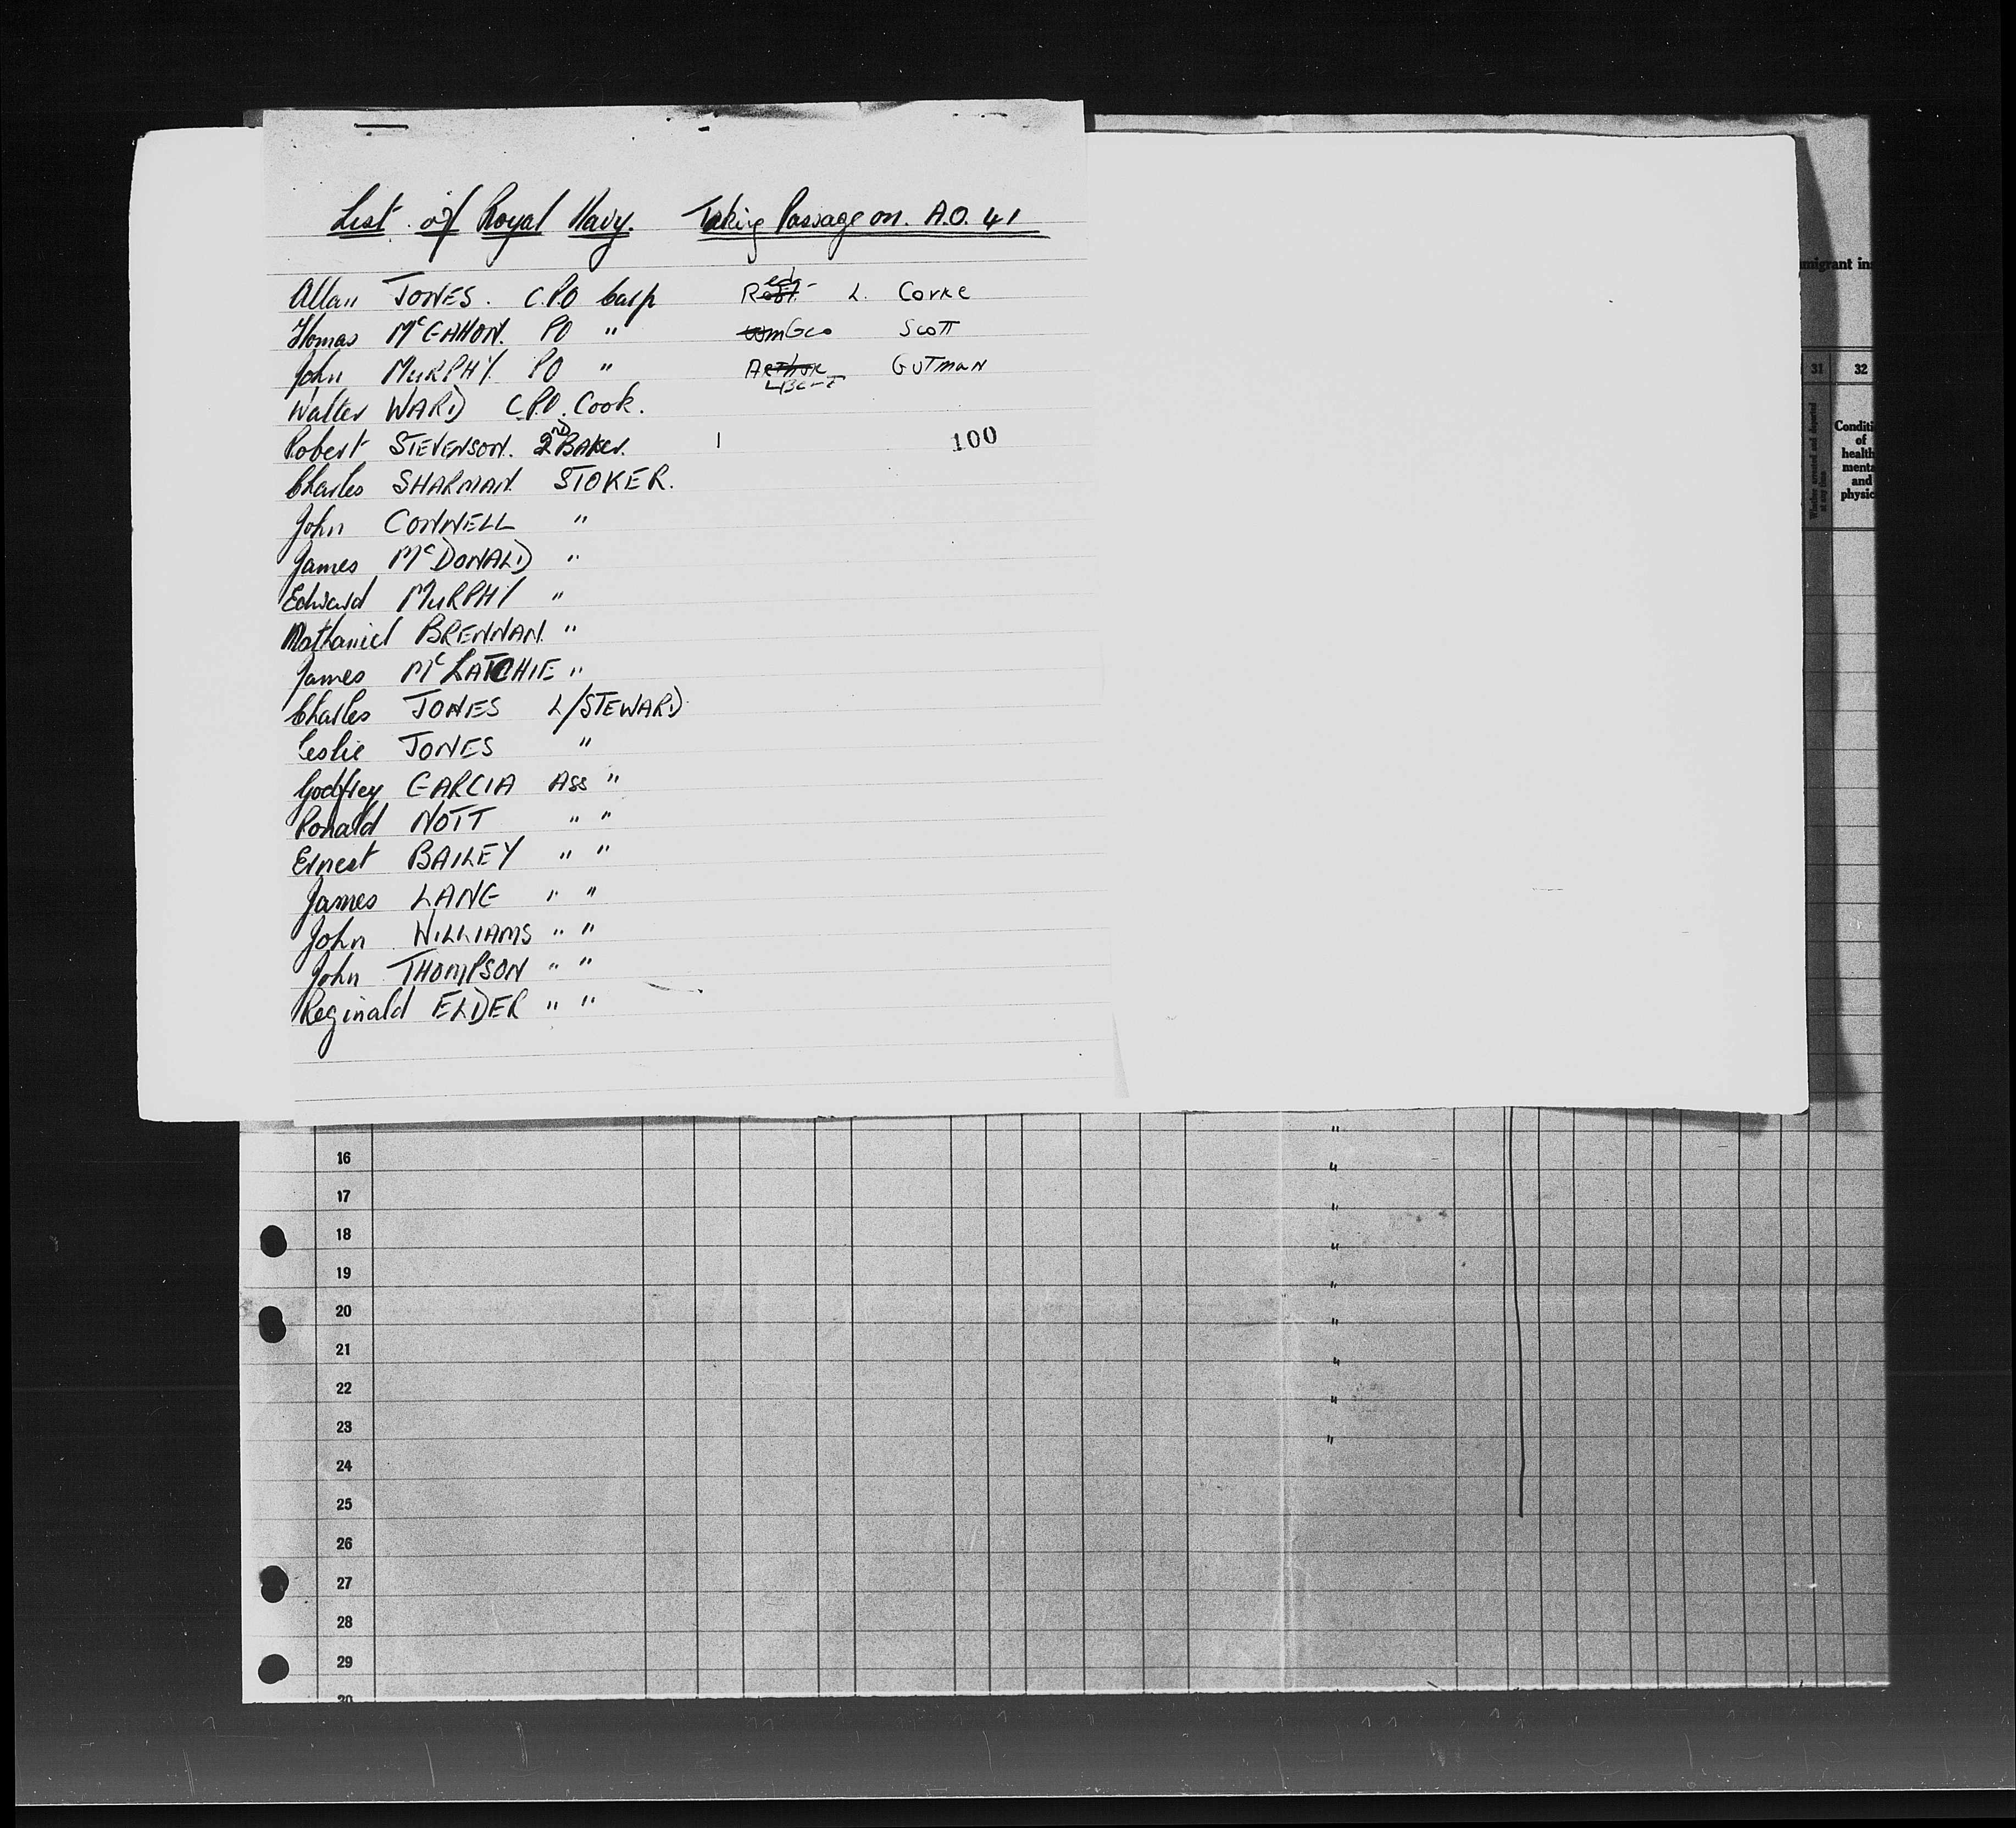 List of Royal Navy. Taking Passage on. A.O. 41
Allan JONES. C.P.O Carp
Thomas McGAHON. PO "
John MURPHY PO "
Walter WARD C.P.O. Cook.
Robert STEVENSON. 2ND BAKER.
Charles SHARMAN STOKER.
John CONNELL "
James McDONALD "
Edward MURPHY "
Nathaniel BRENNAN. "
James McLATCHIE "
Charles JONES L/STEWARD
Leslie JONES "
Godfrey GARCIA ASS "
Ronald NOTT " "
Ernest BAILEY " "
James LANG " "
John WILLIAMS " "
John THOMPSON " "
Reginald ELDER " "
L. Corke
Geo Scott
Albert Gutman
1 100
migrant in
31 32
Whether arrested and deported at any time
Conditi
of
health
menta
and
physic
"
16 "
17 "
18 "
19 "
20 "
21 "
22 "
23 "
24
25
26
27
28
29
30